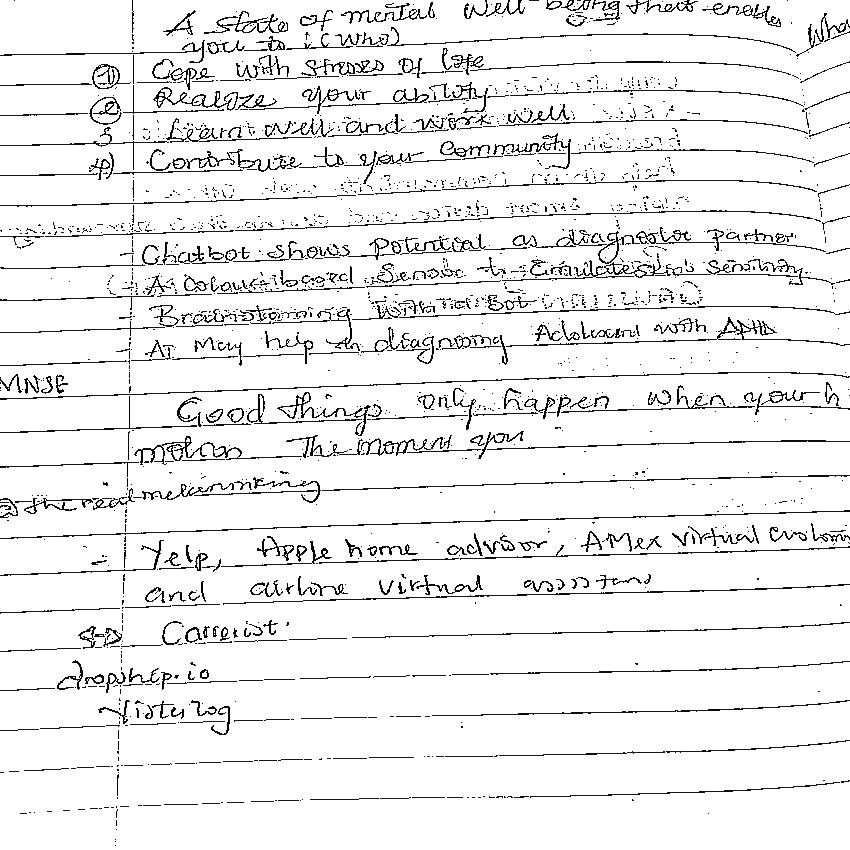 A state of mental well-being that enables
you to: (WHO)
① Cope with stresses of life
② Realize your ability
3 Learn well and work well
4) Contribute to your community
- Chatbot shows potential as diagnostic partner
- A colour-based sensor to sensitivity
- Brainstorming with the Bot
- AI may help in diagnosing Adolescent with ADHD
MNSE
Good things only happen when your h
The moment you
the real
- Yelp, Apple home advisor, AMex virtual custom
and airline virtual assistant
Careerist
dropship.io